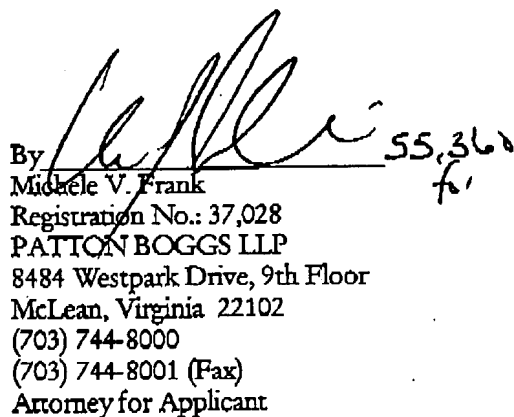 By 55,360
for
Michele V. Frank
Registration No.: 37,028
PATTON BOGGS LLP
8484 Westpark Drive, 9th Floor
McLean, Virginia 22102
(703) 744-8000
(703) 744-8001 (Fax)
Attorney for Applicant